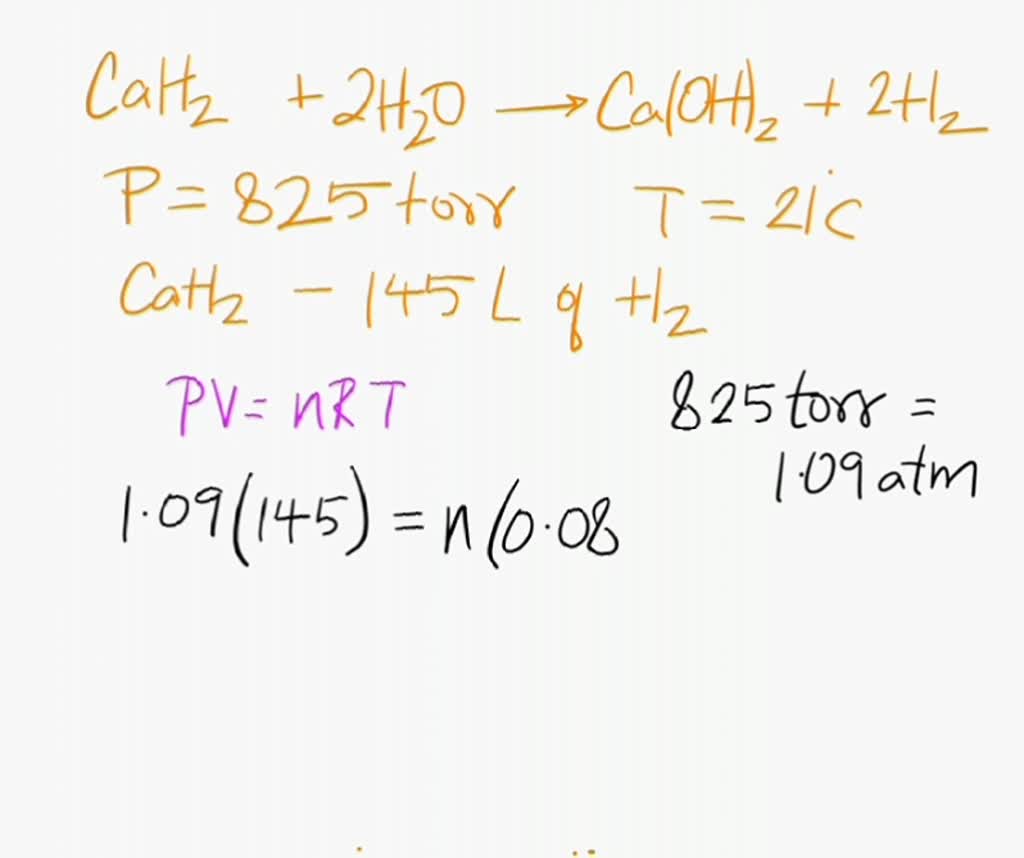 CaH₂ + 2H₂O → Ca(OH)₂ + 2H₂
P = 825 torr T = 21°C
CaH₂ - 145 L of H₂
PV = nRT 825 torr =
1.09 atm
1.09(145) = n(0.08